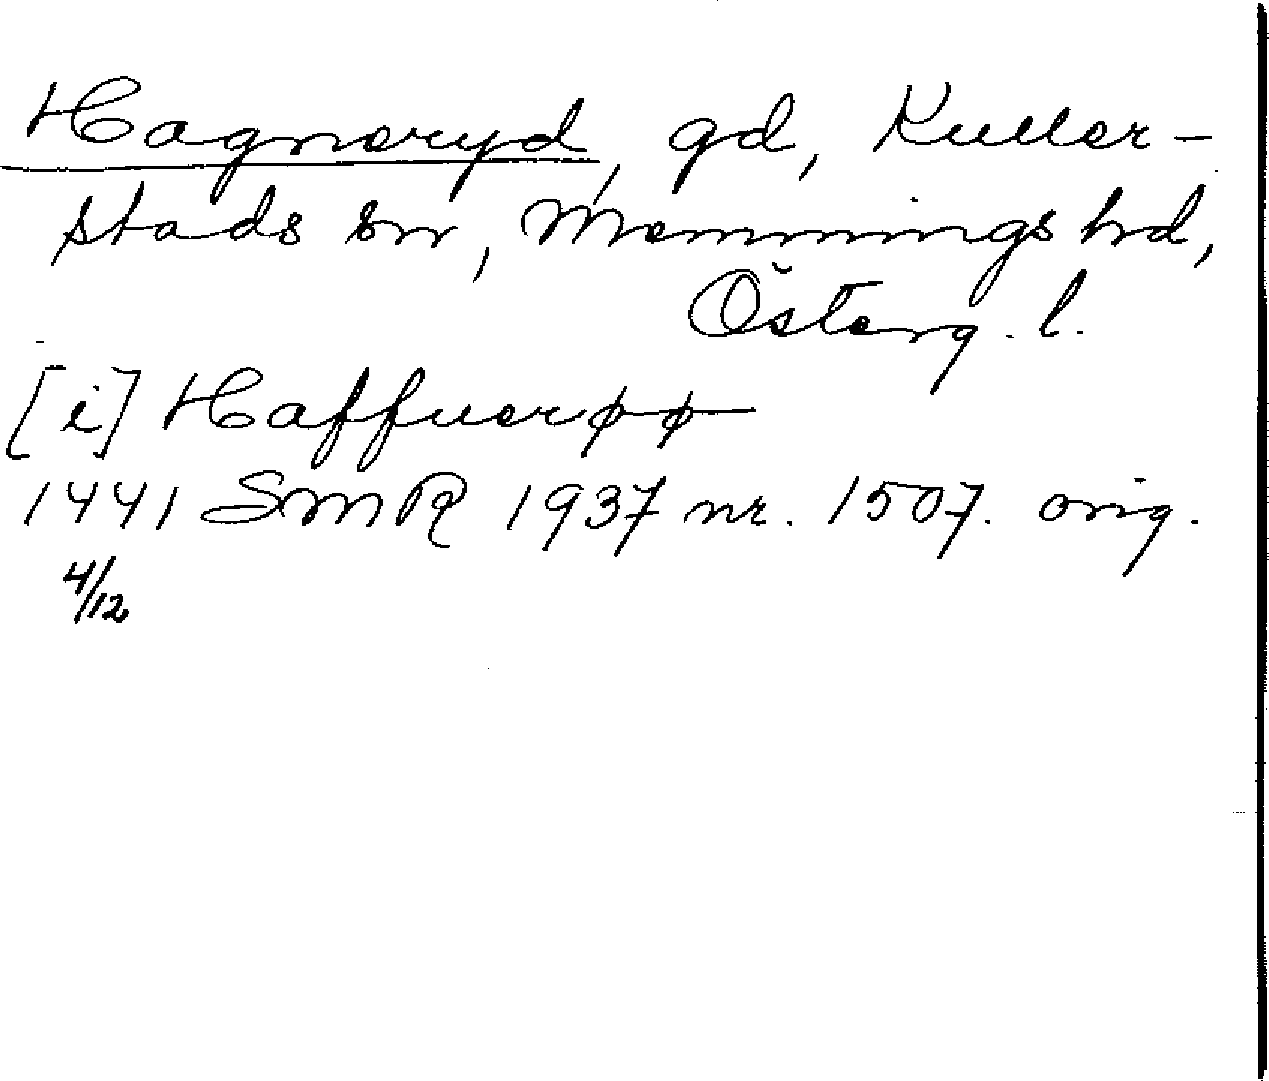 Hagneryd, gd, Kuller-
stads sn, Memmings hd,
Österg. l.
[i] Haffuerøø
1441 SMR 1937 nr. 1507. orig.
4/12